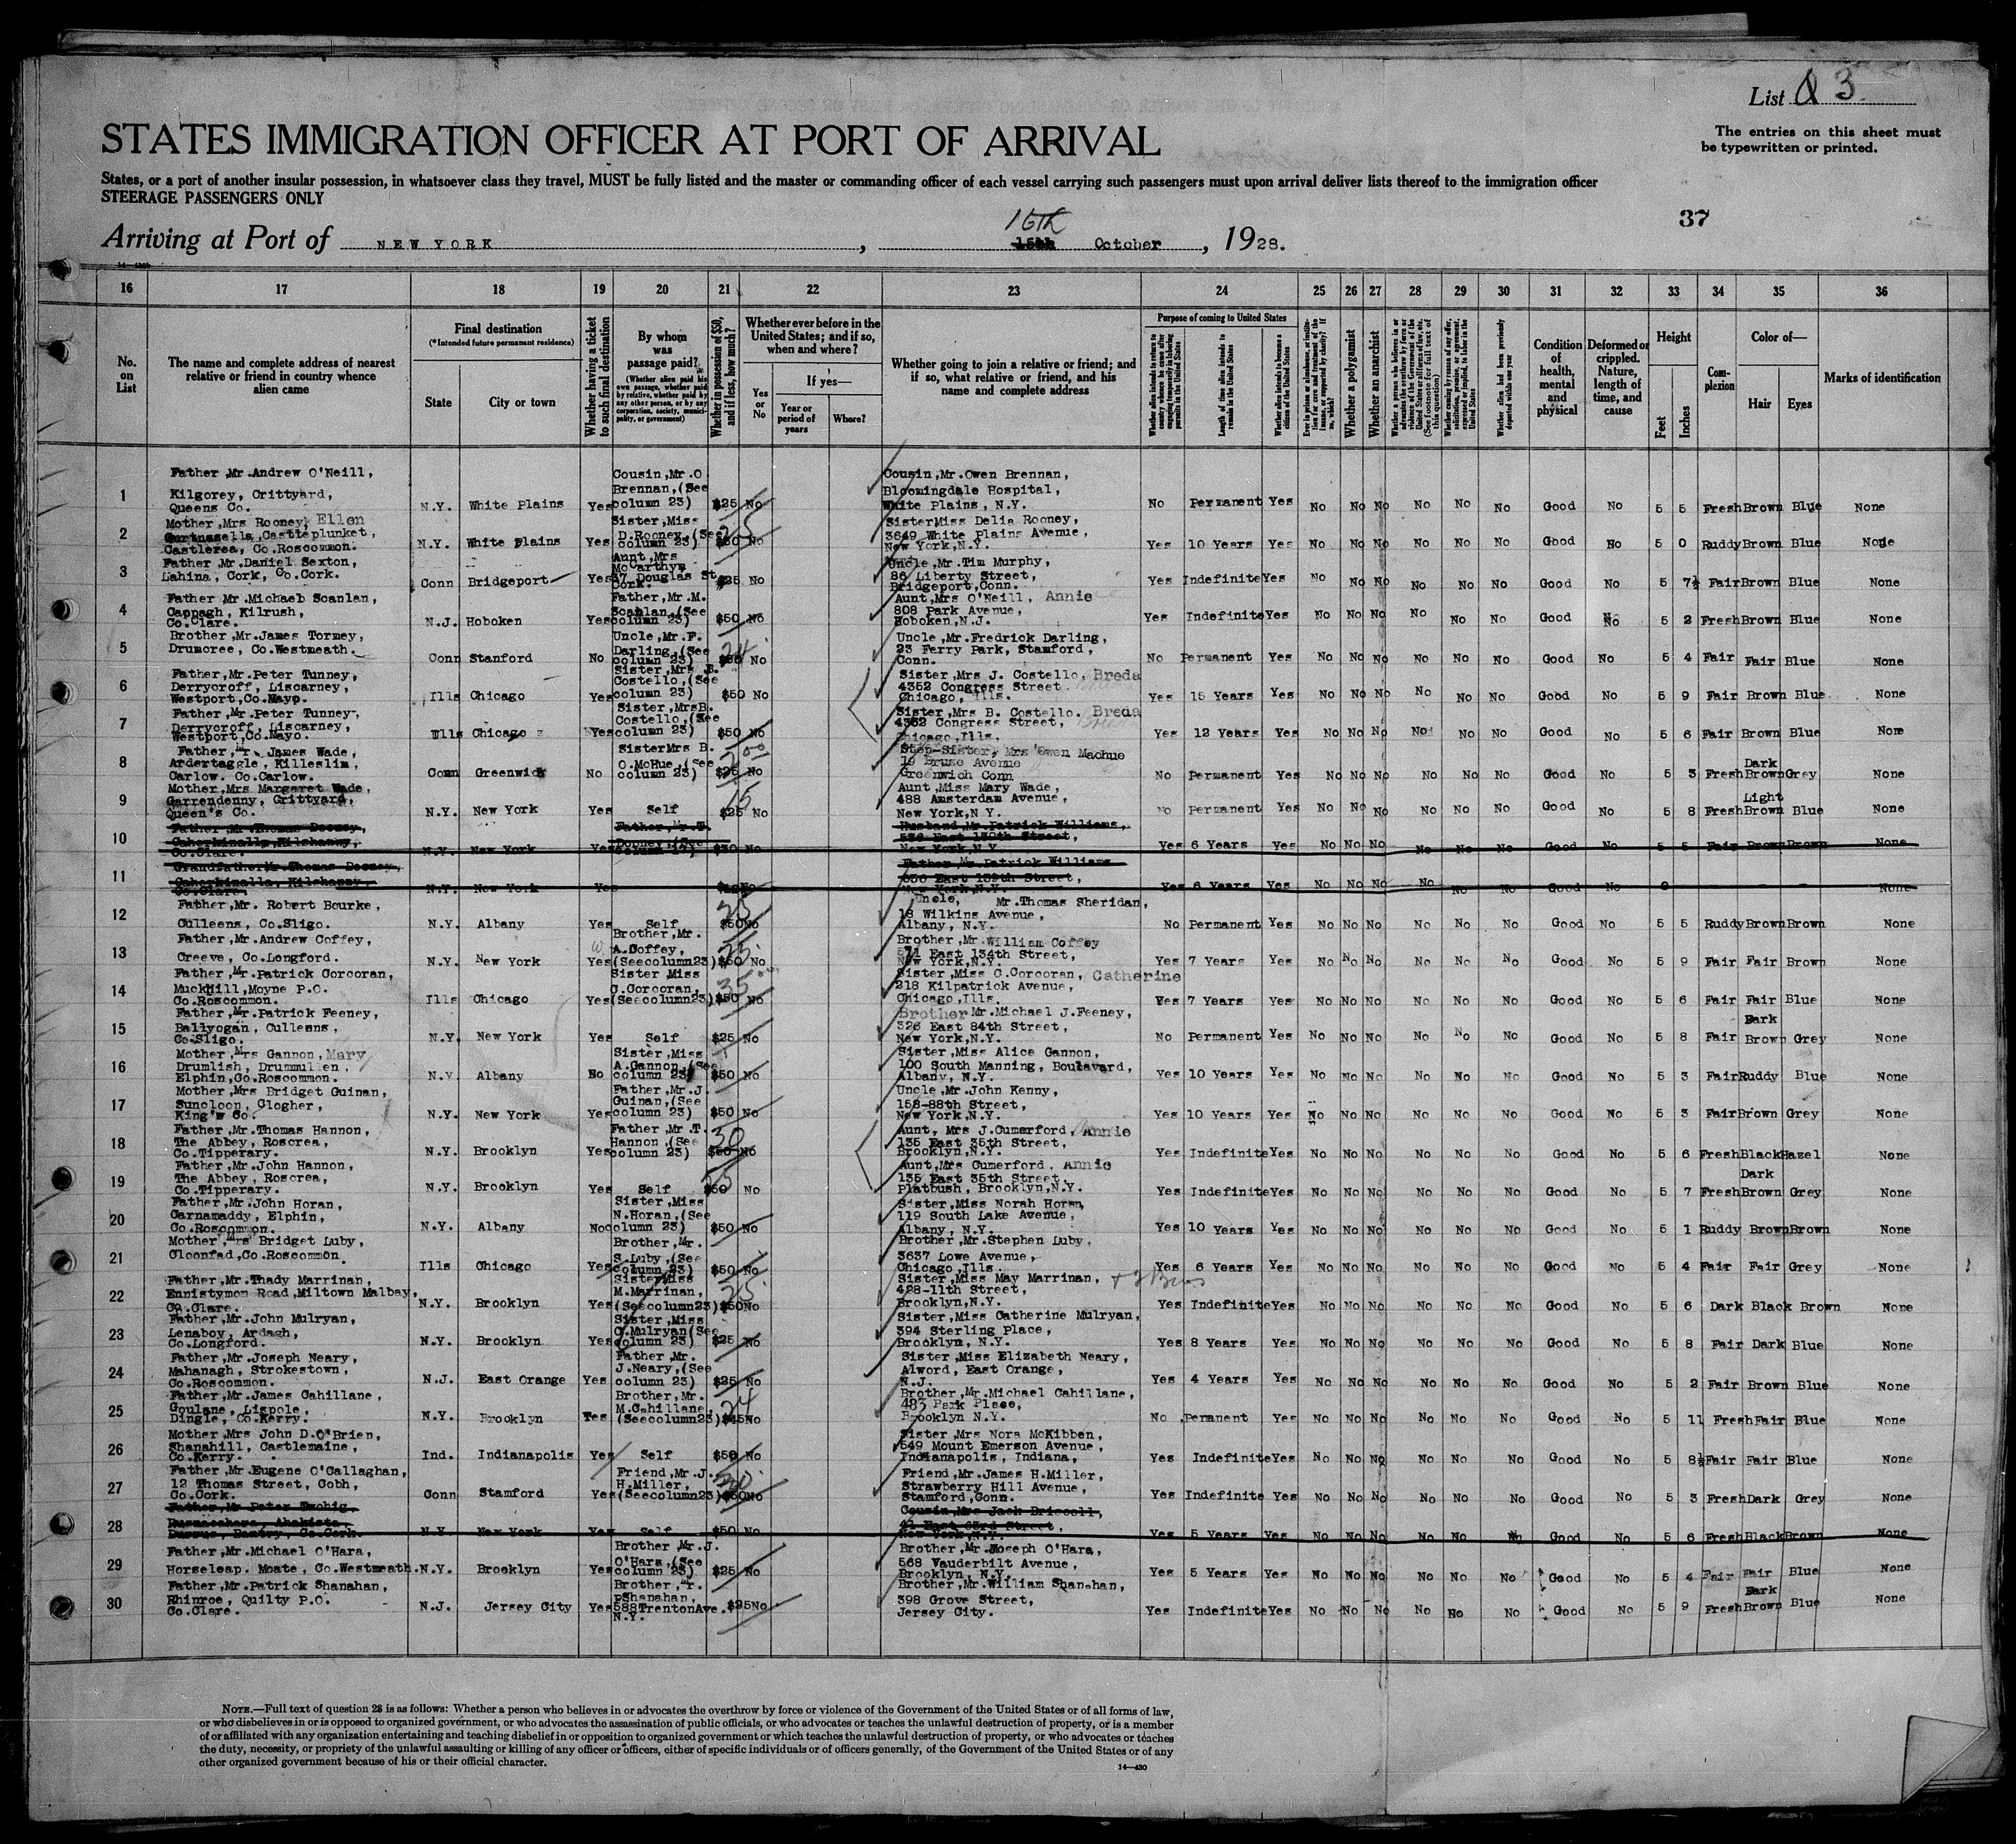 List Q 3.
The entries on this sheet must
be typewritten or printed.
STATES IMMIGRATION OFFICER AT PORT OF ARRIVAL
States, or a port of another insular possession, in whatsoever class they travel, MUST be fully listed and the master or commanding officer of each vessel carrying such passengers must upon arrival deliver lists thereof to the immigration officer
STEERAGE PASSENGERS ONLY
37
Arriving at Port of NEW YORK, 16th 15th October, 1928.
16 17 18 19 20 21 22 23 24 25 26 27 28 29 30 31 32 33 34 35 36
No. on List
The name and complete address of nearest relative or friend in country whence alien came
Final destination
(*Intended future permanent residence)
State
City or town
Whether having a ticket to such final destination
By whom was passage paid?
(Whether alien paid his own passage, whether paid by relative, whether paid by any other person, or by any corporation, society, municipality, or government)
Whether in possession of $50, and if less, how much?
Whether ever before in the United States; and if so, when and where?
Yes or No
If yes—
Year or period of years
Where?
Whether going to join a relative or friend; and if so, what relative or friend, and his name and complete address
Purpose of coming to United States
Length of time alien intends to remain in the United States
Whether alien intends to become a citizen of the United States
Whether a polygamist
Whether an anarchist
Condition of health, mental and physical
Deformed or crippled. Nature, length of time, and cause
Height
Feet
Inches
Complexion
Color of—
Hair
Eyes
Marks of identification
1 Father, Mr. Andrew O'Neill, Kilgorey, Crittyard, Queens Co. N.Y. White Plains Yes Cousin, Mr. O Brennan, (See column 23) $25 No Cousin, Mr. Owen Brennan, Bloomingdale Hospital, White Plains, N.Y. No Permanent Yes No No No No No No Good No 5 5 Fresh Brown Blue None
2 Mother, Mrs Rooney, Ellen Castleplunket, Castlerea, Co. Roscommon. N.Y. White Plains Yes Sister, Miss D. Rooney, (See column 23) $50 No Sister Miss Delia Rooney, 3649 White Plains Avenue, New York, N.Y. Yes 10 Years Yes No No No No No No Good No 5 0 Ruddy Brown Blue None
3 Father, Mr. Daniel Sexton, Lahina, Cork, Co. Cork. Conn Bridgeport Yes Aunt, Mrs McCarthyn 37 Douglas St Cork. $25 No Uncle, Mr. Tim Murphy, 86 Liberty Street, Bridgeport, Conn. Yes Indefinite Yes No No No No No No Good No 5 7½ Fair Brown Blue None
4 Father Mr. Michael Scanlan, Cappagh, Kilrush, Co. Clare. N.J. Hoboken Yes Father, Mr. M. Scanlan, (See column 23) $50 No Aunt, Mrs O'Neill, Annie 808 Park Avenue, Hoboken, N.J. Yes Indefinite Yes No No No No No No Good No 5 2 Fresh Brown Blue None
5 Brother, Mr. James Tormey, Drumoree, Co. Westmeath. Conn Stanford No Uncle, Mr. F. Darling, (See column 23) $50 24 No Uncle, Mr. Fredrick Darling, 23 Ferry Park, Stamford, Conn. No Permanent Yes No No No No No No Good No 5 4 Fair Fair Blue None
6 Father, Mr. Peter Tunney, Derrycroff, Liscarney, Westport, Co. Mayo. Ills Chicago Yes Sister, Mrs B. Costello, (See column 23) $50 No Sister, Mrs J. Costello, Breda 4352 Congress Street. Chicago, Ills. Yes 15 Years Yes No No No No No No Good No 5 9 Fair Brown Blue None
7 Father, Mr. Peter Tunney, Derrycroff, Liscarney, Westport, Co. Mayo. Ills Chicago Yes Sister, Mrs B. Costello, (See column 23) $50 No Sister, Mrs B. Costello. Breda 4352 Congress Street, Chicago, Ills. Yes 12 Years Yes No No No No No No Good No 5 6 Fair Brown Blue None
8 Father, Mr. James Wade, Ardertaggle, Killeslim, Carlow. Co. Carlow. Conn Greenwich No Sister Mrs B. O.McHue, (See column 23) $25 No Step-Sister, Mrs Owen Machue 19 Bruse Avenue Greenwich Conn No Permanent Yes No No No No No No Good No 5 3 Fresh Dark Brown Grey None
9 Mother, Mrs Margaret Wade, Garrendenny, Crittyard, Queen's Co. N.Y. New York Yes Self $25 15 No Aunt, Miss Mary Wade, 488 Amsterdam Avenue, New York, N Y. No Permanent Yes No No No No No No Good No 5 8 Fresh Light Brown Blue None
10 Father, Mr. Thomas Dooney, Caherkinalla, Kilshanny, Co. Clare. N.Y. New York Yes Father, Mr. T. Dooney, (See column 17) $50 No Husband, Mr. Patrick Williams, 536 East 139th Street, New York, N.Y. Yes 6 Years Yes No No No No No No Good No 5 5 Fair Brown Brown None
11 Grandfather, Mr. Thomas Dooney, Caherkinalla, Kilshanny, Co. Clare. N.Y. New York Yes No Father, Mr. Patrick Williams 536 East 139th Street, New York, N.Y. Yes 6 Years Yes No No No No No No Good No None
12 Father, Mr. Robert Bourke, Culleens, Co. Sligo. N.Y. Albany Yes Self $50 25 No Uncle, Mr. Thomas Sheridan, 18 Wilkins Avenue, Albany, N.Y. No Permanent Yes No No No No No No Good No 5 5 Ruddy Brown Brown None
13 Father, Mr. Andrew Coffey, Creeve, Co. Longford. N.Y. New York Yes Brother, Mr. A. Coffey, (See column 23) $50 25 No Brother, Mr. William Coffey 571 East 134th Street, New York, N.Y. Yes 7 Years Yes No No No No No No Good No 5 9 Fair Fair Brown None
14 Father, Mr. Patrick Corcoran, Muckhill, Moyne P.O. Co. Roscommon. Ills Chicago Yes Sister Miss C. Corcoran, (See column 23) $50 35 No Sister, Miss C. Corcoran, Catherine 218 Kilpatrick Avenue, Chicago, Ills. Yes 7 Years Yes No No No No No No Good No 5 6 Fair Fair Blue None
15 Father, Mr. Patrick Feeney, Ballyogan, Culleens, Co. Sligo. N.Y. New York Yes Self $25 No Brother Mr. Michael J. Feeney, 326 East 84th Street, New York, N.Y. No Permanent Yes No No No No No No Good No 5 8 Fair Dark Brown Grey None
16 Mother, Mrs Gannon, Mary Drumlish, Drummullen, Elphin, Co. Roscommon. N.Y. Albany No Sister, Miss A. Gannon, (See column 23) $50 No Sister, Miss Alice Gannon, 100 South Manning, Boulavard, Albany, N.Y. Yes 10 Years Yes No No No No No No Good No 5 3 Fair Ruddy Blue None
17 Mother, Mrs Bridget Guinan, Suncloon, Clogher, King's Co. N.Y. New York Yes Father, Mr. J. Guinan, (See column 23) $50 No Uncle, Mr. John Kenny, 158-88th Street, New York, N.Y. Yes 10 Years Yes No No No No No No Good No 5 3 Fair Brown Grey None
18 Father, Mr. Thomas Hannon, The Abbey, Roscrea, Co. Tipperary. N.Y. Brooklyn Yes Father, Mr. T. Hannon, (See column 23) $50 30 No Aunt, Mrs J. Cumerford, Annie 135 East 35th Street, Brooklyn, N.Y. Yes Indefinite Yes No No No No No No Good No 5 6 Fresh Black Hazel None
19 Father, Mr. John Hannon, The Abbey, Roscrea, Co. Tipperary. N.Y. Brooklyn Yes Self $50 25 No Aunt, Mrs Cumerford, Annie 135 East 35th Street. Flatbush, Brooklyn, N.Y. Yes Indefinite Yes No No No No No No Good No 5 7 Fresh Dark Brown Grey None
20 Father, Mr. John Horan, Carnamaddy, Elphin, Co. Roscommon. N.Y. Albany No Sister, Miss N. Horan, (See column 23) $50 No Sister, Miss Norah Horan, 119 South Lake Avenue, Albany, N.Y. Yes 10 Years Yes No No No No No No Good No 5 1 Ruddy Brown Brown None
21 Mother, Mrs Bridget Luby, Cloonfad, Co. Roscommon. Ills Chicago Yes Brother, Mr. S. Luby, (See column 23) $50 No Brother, Mr. Stephen Luby, 3637 Lowe Avenue, Chicago, Ills. Yes 6 Years Yes No No No No No No Good No 5 4 Fair Fair Grey None
22 Father, Mr. Thady Marrinan, Ennistymon Road, Miltown Malbay, Co. Clare. N.Y. Brooklyn Yes Sister Miss M. Marrinan, (See column 23) $50 25 No Sister, Miss May Marrinan, + 2 Bros 428-11th Street, Brooklyn, N.Y. Yes Indefinite Yes No No No No No No Good No 5 6 Dark Black Brown None
23 Father, Mr. John Mulryan, Lenaboy, Ardagh, Co. Longford. N.Y. Brooklyn Yes Sister, Miss C. Mulryan (See column 23) $25 No Sister, Miss Catherine Mulryan, 394 Sterling Place, Brooklyn, N.Y. Yes 8 Years Yes No No No No No No Good No 5 8 Fair Dark Blue None
24 Father, Mr. Joseph Neary, Mahanagh, Strokestown, Co. Roscommon. N.J. East Orange Yes Father, Mr. J. Neary, (See column 23) $25 No Sister, Miss Elizabeth Neary, Alword, East Orange, N.J. Yes 4 Years Yes No No No No No No Good No 5 2 Fair Brown Blue None
25 Father, Mr. James Cahillane, Goulane, Lispole, Dingle, Co. Kerry. N.Y. Brooklyn Yes Brother, Mr. M. Cahillane, (See column 23) $45 24 No Brother, Mr. Michael Cahillane, 483 Park Place, Brooklyn N.Y. No Permanent Yes No No No No No No Good No 5 11 Fresh Fair Blue None
26 Mother, Mrs John D. O'Brien, Shanahill, Castlemaine, Co. Kerry. Ind. Indianapolis Yes Self $50 No Sister, Mrs Nora McKibben, 549 Mount Emerson Avenue, Indianapolis, Indiana, Yes Indefinite Yes No No No No No No Good No 5 8½ Fair Fair Blue None
27 Father, Mr. Eugene O'Callaghan, 12 Thomas Street, Cobh, Co. Cork. Conn Stamford Yes Friend, Mr. J. H. Miller, (See column 23) $50 30 No Friend, Mr. James H. Miller, Strawberry Hill Avenue, Stamford, Conn. Yes Indefinite Yes No No No No No No Good No 5 3 Fresh Dark Grey None
28 Father, Mr Peter Twohig, Ahakista, Durrus, Bantry, Co. Cork. N.Y. New York Yes Self $50 No Cousin, Mrs Jack Driscoll, 41 East 63rd Street, New York, N.Y. Yes 5 Years Yes No No No No No No Good No 5 6 Fresh Black Brown None
29 Father, Mr. Michael O'Hara, Horseleap. Moate, Co. Westmeath. N.Y. Brooklyn Yes Brother Mr. J. O'Hara, (See column 23) $25 No Brother, Mr. Joseph O'Hara, 568 Vauderbilt Avenue, Brooklyn, N.Y. Yes 5 Years Yes No No No No No No Good No 5 4 Fair Fair Blue None
30 Father, Mr. Patrick Shanahan, Rhinroe, Quilty P.O. Co. Clare. N.J. Jersey City Yes Brother, Mr. P Shanahan, 588 Trenton Ave. N.Y. $25 No Brother, Mr. William Shanahan, 398 Grove Street, Jersey City. Yes Indefinite Yes No No No No No No Good No 5 9 Fresh Dark Brown Blue None
NOTE.—Full text of question 28 is as follows: Whether a person who believes in or advocates the overthrow by force or violence of the Government of the United States or of all forms of law,
or who disbelieves in or is opposed to organized government, or who advocates the assassination of public officials, or who advocates or teaches the unlawful destruction of property, or is a member
of or affiliated with any organization entertaining and teaching disbelief in or opposition to organized government or which teaches the unlawful destruction of property, or who advocates or teaches
the duty, necessity, or propriety of the unlawful assaulting or killing of any officer or officers, either of specific individuals or of officers generally, of the Government of the United States or of any
other organized government because of his or their official character.
14—430